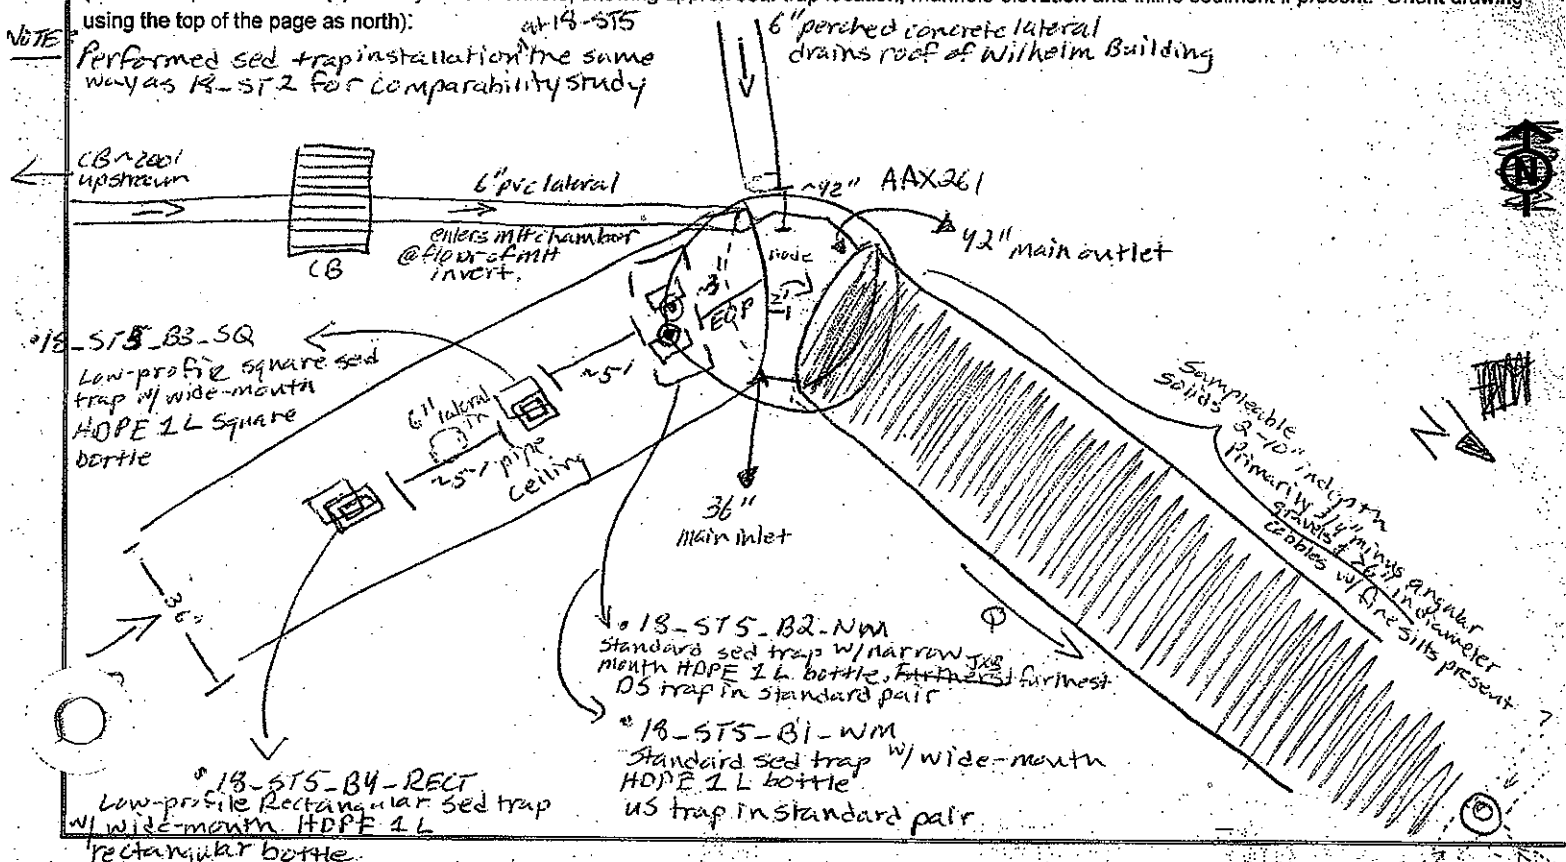 using the top of the page as north):
NOTE:
at 18-ST5
Performed sed trap installation the same
way as 18-ST2 for comparability study
6" perched concrete lateral
drains roof of Wilhelm Building
N
CB ~200'
upstream
6" pvc lateral
enters MH chamber
@ floor of MH
invert.
CB
~42" AAX261
42" main outlet
node
~3'
EOP
18_ST5_B3_SQ
Low-profile square sed
trap w/ wide-mouth
HDPE 1 L Square
bottle
~5'
6" lateral
in
~5' pipe
ceiling
36"
main inlet
36"
Sampleable
solids
2-10" in depth
Primarily 3/4" minus angular
gravels & >6" in diameter
cobbles w/ fine silts present
N
Q
18-ST5-B2-NM
Standard sed trap w/ narrow
mouth HDPE 1 L bottle. Furtherst JXB furthest
DS trap in standard pair
18-ST5-B1-WM
Standard sed trap w/ wide-mouth
HDPE 1 L bottle
US trap in standard pair
18-ST5-B4-RECT
Low-profile Rectangular sed trap
w/ wide-mouth HDPE 1 L
rectangular bottle